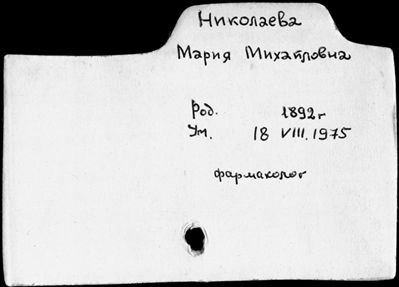 Николаева
Мария Михайловна
Род. 1892 г
Ум. 18 VIII.1975
фармаколог